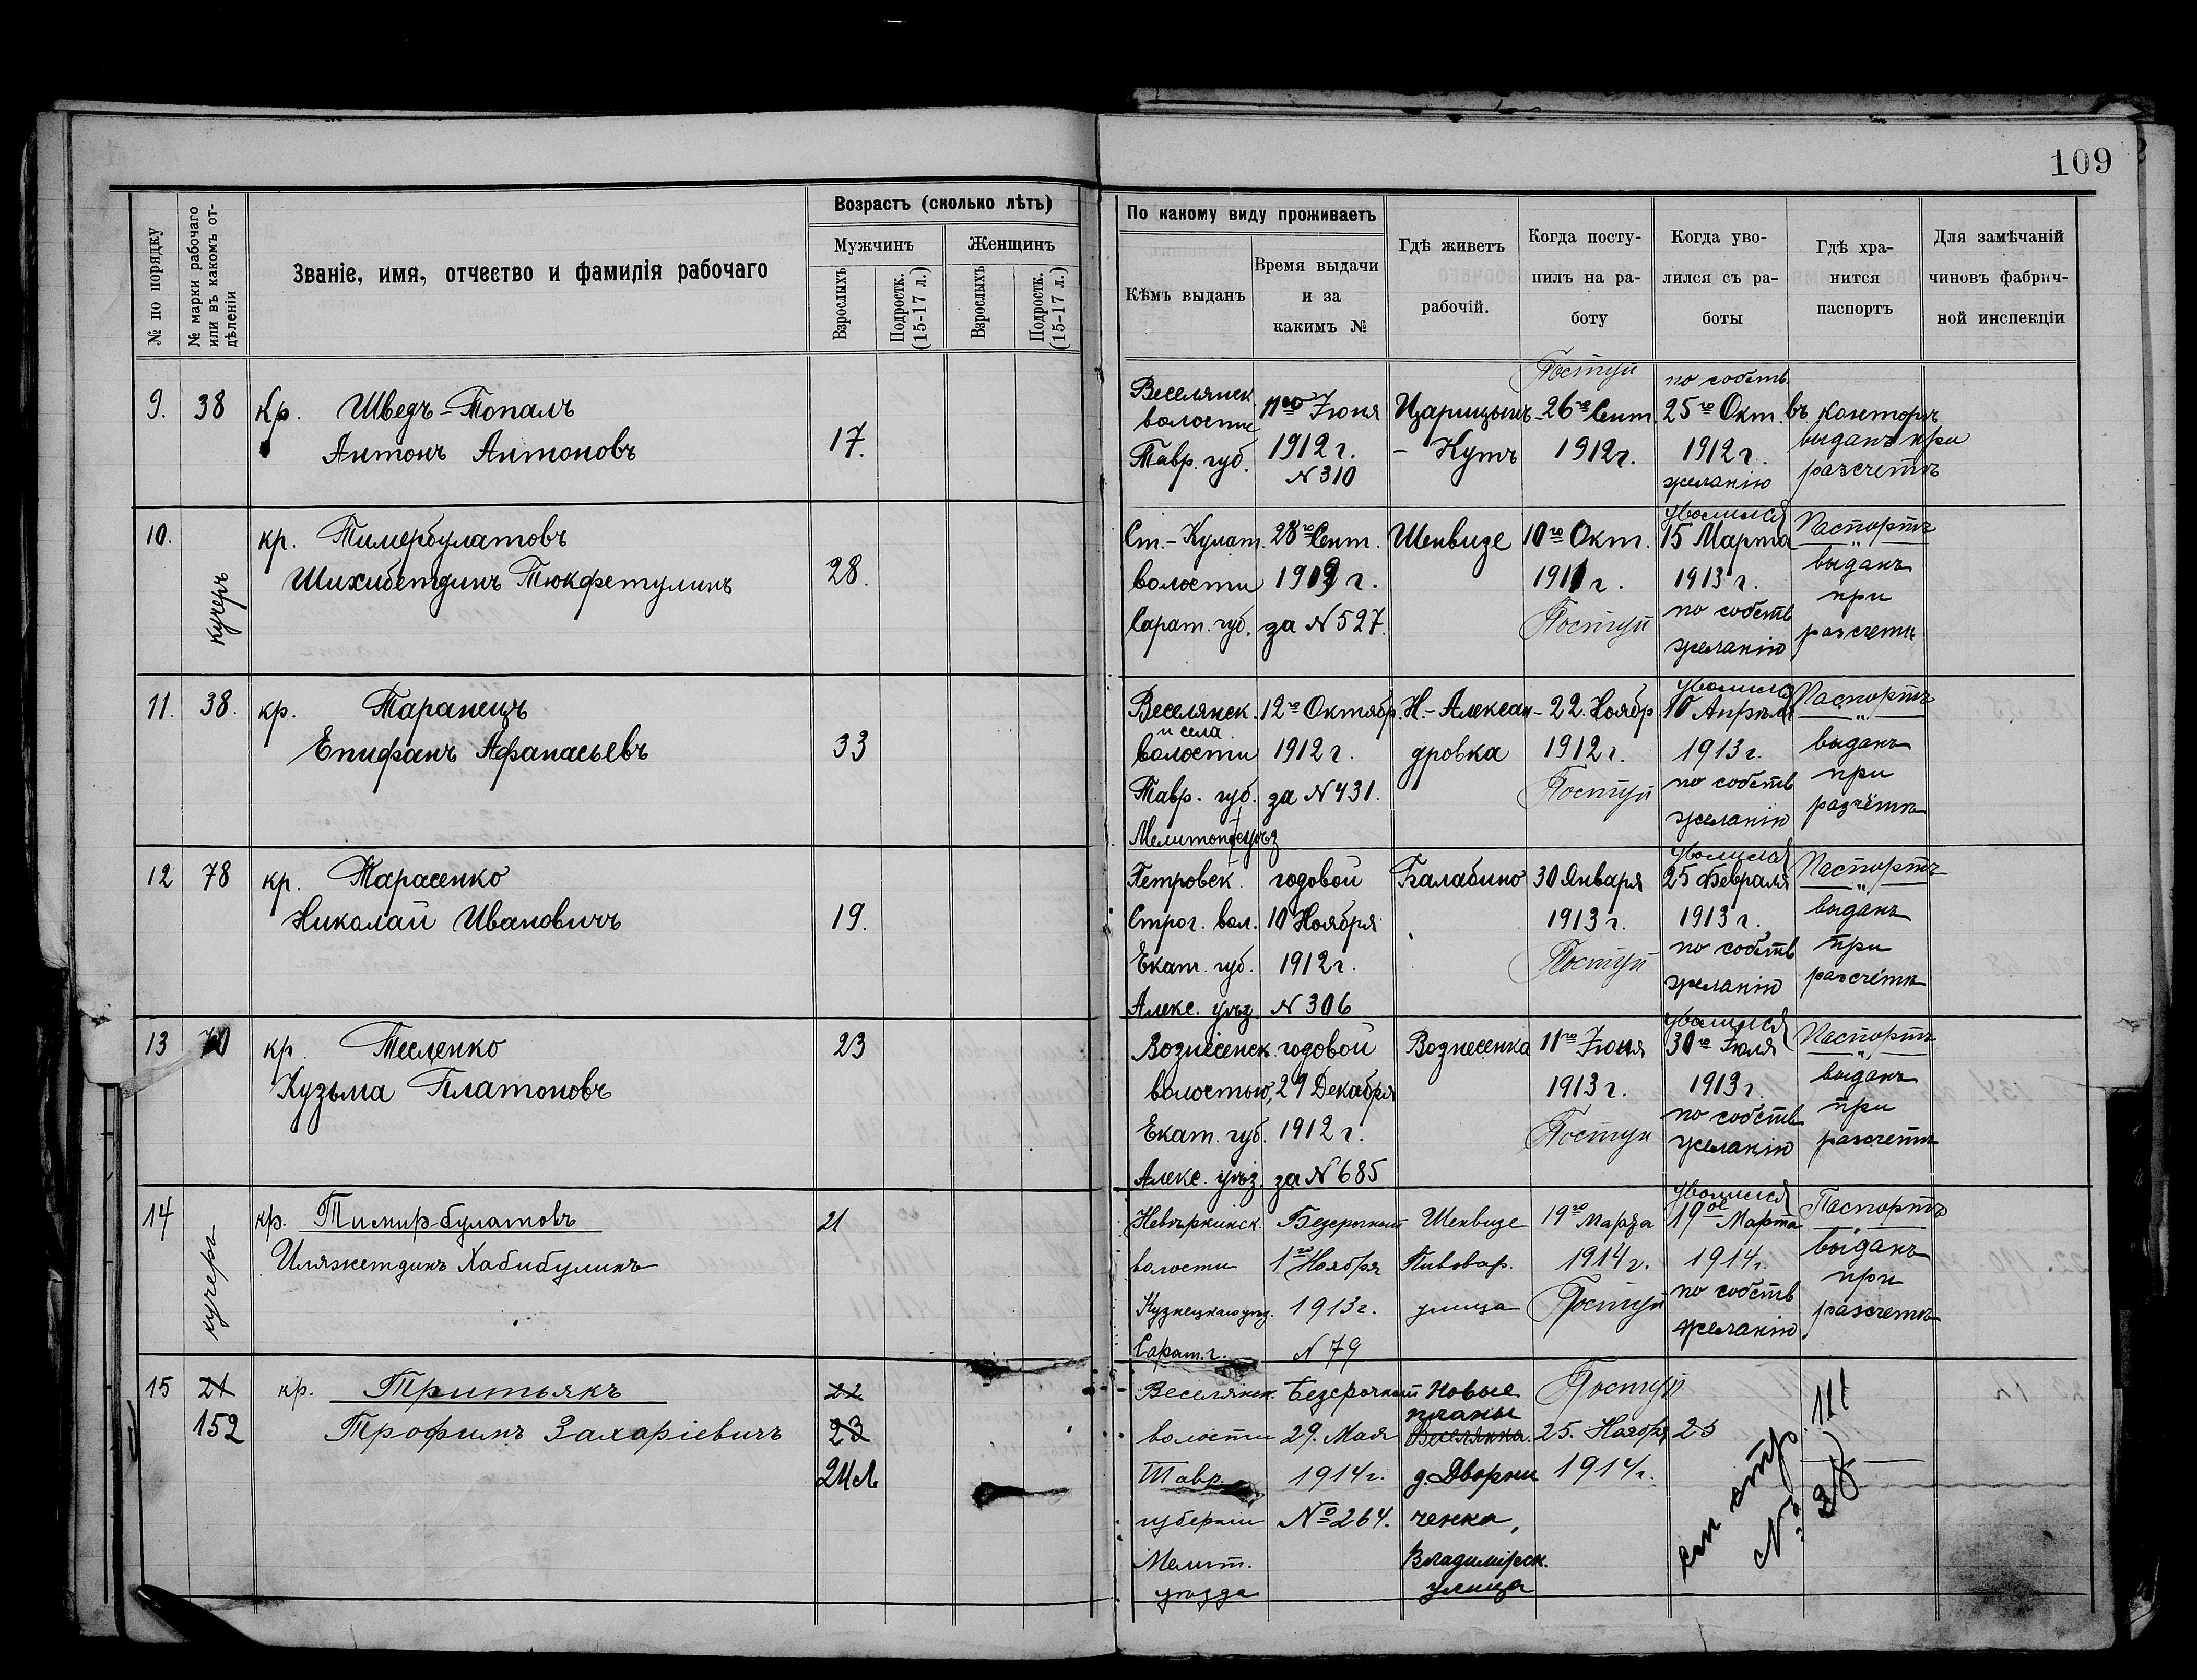 109
№ по порядку
№ марки рабочаго или въ какомъ отдѣленіи
Званіе, имя, отчество и фамилія рабочаго
Возрастъ (сколько лѣтъ)
Мужчинъ
Женщинъ
Взрослыхъ
Подростк. (15-17 л.)
Взрослыхъ
Подростк. (15-17 л.)
По какому виду проживаетъ
Кѣмъ выданъ
Время выдачи
и за
какимъ №
Гдѣ живетъ
рабочій.
Когда посту-
пилъ на ра-
боту
Когда уво-
лился съ ра-
боты
Гдѣ хра-
нится
паспортъ
Для замѣчаній
чиновъ фабрич-
ной инспекціи
9. 38 Кр. Шведъ-Топалъ
Антонъ Антоновъ
17.
Веселянск
волости
Тавр. губ.
11го Іюня
1912 г.
N 310
Царицынъ
- Кутъ
Поступ
26го Сент.
1912 г.
по собств.
25го Окт.
1912 г.
желанію
въ конторѣ
выданъ при
разсчетѣ
10. кучеръ
кр. Тимербулатовъ
Шихибетдинъ Тюкфетулинъ
28.
Ст.-Кулат.
волости
Сарат. губ.
28го Сент.
1912 г.
за N 527.
Шенвизе
10го Окт.
1911 г.
Поступ
уволился
15 Марта
1913 г.
по собств
желанію
Паспортъ
выданъ
при
разсчетѣ
11. 38. кр. Таранецъ
Епифанъ Афанасьевъ
33
Веселянск.
и села
волости
Тавр. губ.
Мелитоп уѣз
12го Октябр.
1912 г.
за N 431.
Н.-Алексан-
дровка
22. Ноябр
1912 г.
Поступ
уволился
10 Апрѣля
1913 г.
по собств
желанію
Паспортъ
выданъ
при
разчётѣ
12 78 кр. Тарасенко
Николай Ивановичъ
19.
Петровск.
Строг. вол.
Екат. губ.
Алекс. уѣз.
годовой
10 Ноября
1912 г.
N 306
Балабино
30 Января
1913 г.
Поступ
уволился
25 Февраля
1913 г.
по собств
желанію
Паспортъ
выданъ
при
разсчётѣ
13 70 кр. Тесленко
Кузьма Платоновъ
23
Вознесенск.
волостью,
Екат. губ.
Алекс. уѣз.
годовой
29 Декабря
1912 г.
за N 685
Вознесенка
11го Іюня
1913 г.
Поступ
уволился
30го Іюля
1913 г.
по собств
желанію
Паспортъ
выданъ
при
разсчетѣ
14 кучеръ
кр. Тимирбулатовъ
Иляжетдинъ Хабибулинъ
21
Невѣркинск.
волости
Кузнецкаго уѣз.
Сарат. г.
Безсрочный
1го Ноября
1913 г.
N 79
Шенвизе
Пивовар.
улица
19го Марта
1914 г.
Поступ
уволился
19ое Марта
1914 г.
по собств
желанію
Паспортъ
выданъ
при
разсчетѣ
15 21
152
кр. Тритьякъ
Трофимъ Захаріевичъ
22
23
24 л.
Веселянск.
волости
Тавр.
губерніи
Мелит.
уѣзда
Безсрочный
29. Мая
1914 г.
№ 264.
Новые
планы
Веселянка.
д. Дворни
ченка,
Владимірск.
улица
Поступ
25. Ноября
1914 г.
25
см стр. 111
№ 28